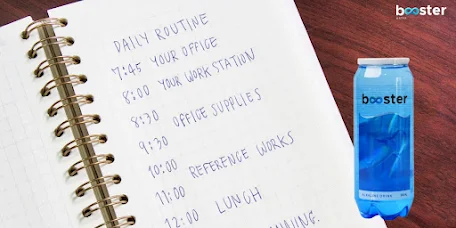 booster
DAILY ROUTINE
7:45 YOUR OFFICE
8:00 YOUR WORKSTATION
8:30
9:30 OFFICE SUPPLIES
10:00
11:00 REFERENCE WORKS
12:00 LUNCH
booster